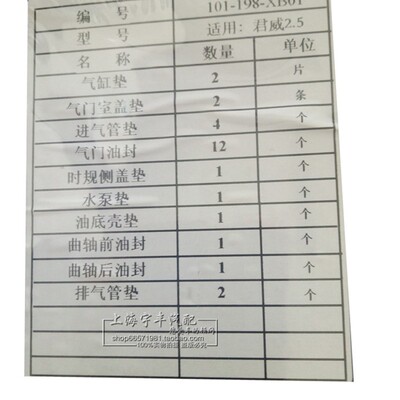 编 号 101-198-XB01
型 号 适用：君威2.5
名 称 数量 单位
气缸垫 2 片
气门室盖垫 2 条
进气管垫 4 个
气门油封 12 个
时规侧盖垫 1 个
水泵垫 1 个
油底壳垫 1 个
曲轴前油封 1 个
曲轴后油封 1 个
排气管垫 2 个
上海宇丰汽配
shop66571981.taobao.net
100%实物拍摄 盗版必究